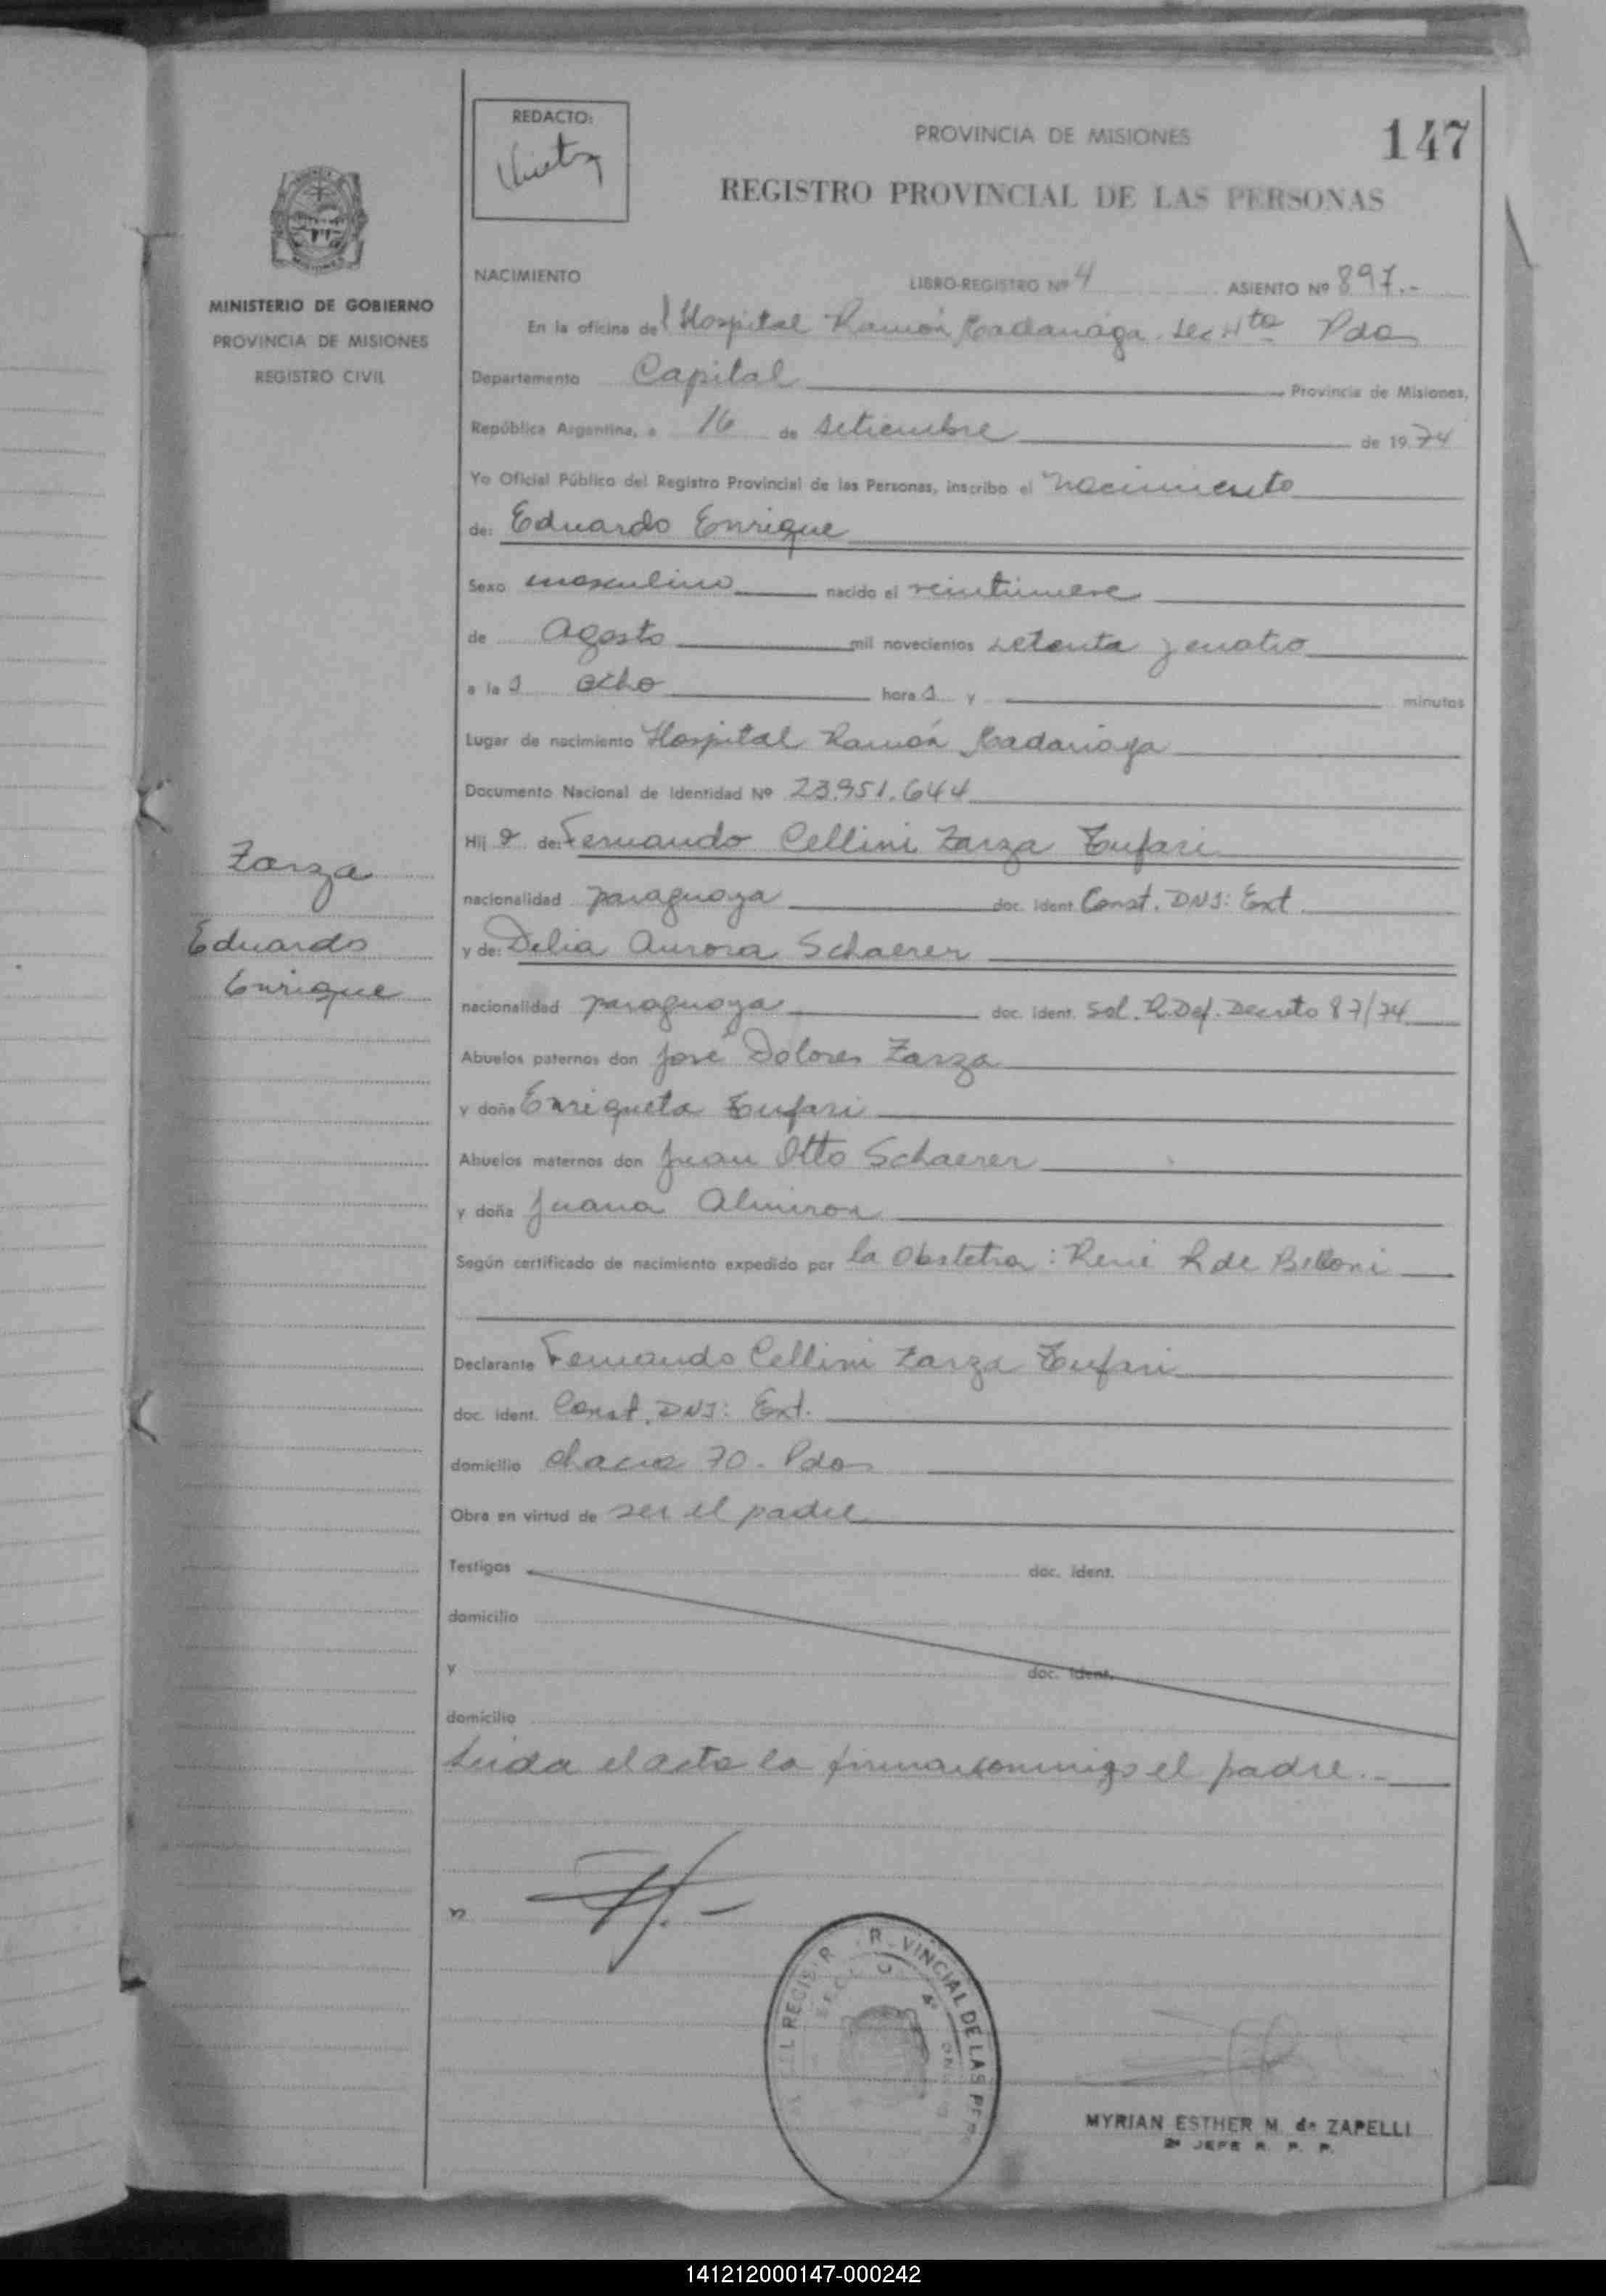 REDACTO:
PROVINCIA DE MISIONES
147
REGISTRO PROVINCIAL DE LAS PERSONAS
MINISTERIO DE GOBIERNO
PROVINCIA DE MISIONES
REGISTRO CIVIL
NACIMIENTO LIBRO-REGISTRO Nº 4 ASIENTO Nº 897.-
En la oficina del Hospital Ramón Madariaga. Sec 4ta Pdas
Departamento Capital Provincia de Misiones,
República Argentina, a 16 de setiembre de 1974
Yo Oficial Público del Registro Provincial de las Personas, inscribo el nacimiento
de: Eduardo Enrique
Sexo masculino nacido el veintinueve
de Agosto mil novecientos setenta y cuatro
a las ocho horas y minutos
Lugar de nacimiento Hospital Ramón Madariaga
Documento Nacional de Identidad Nº 23.951.644
Hijo de: Fernando Cellini Zarza Tufari
nacionalidad paraguaya doc. ident. Const. DNI: Ext.
y de: Delia Aurora Schaerer
nacionalidad paraguaya doc. ident. Sol. R.Def. Decreto 87/74
Abuelos paternos don José Dolores Zarza
y doña Enriqueta Tufari
Abuelos maternos don Juan Otto Schaerer
y doña Juana Almiron
Según certificado de nacimiento expedido por la Obstetra: René R de Belloni
Declarante Fernando Cellini Zarza Tufari
doc. ident. Const. DNI: Ext.
domicilio chacra 70 - Pdas
Obra en virtud de ser el padre
Testigos doc. ident.
domicilio
y doc. ident.
domicilio
Leida el acta la firma conmigo el padre.-
Zarza
Eduardo
Enrique
VINCIAL DE LAS PE
MYRIAN ESTHER M. de ZAPELLI
2º JEFE R. P. P.
141212000147-000242